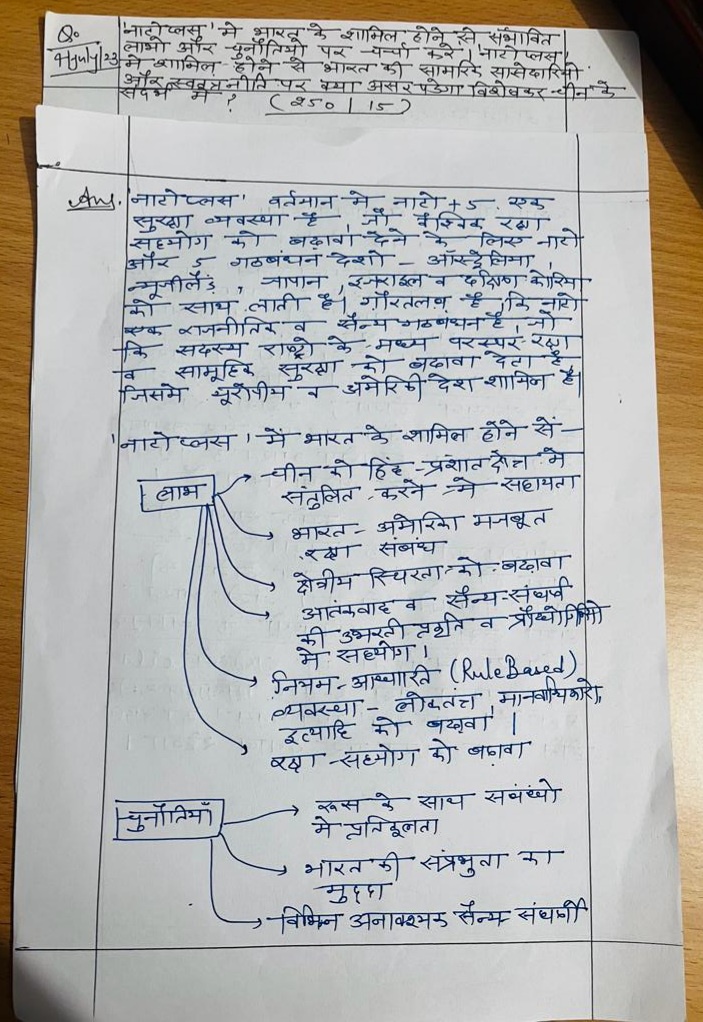 Q. 'नाटोप्लस' मे भारत के शामिल होने से संभावित
9 July 23 लाभो और चुनौतियो पर चर्चा करे। 'नाटोप्लस'
मे शामिल होने से भारत की सामरिक साझेदारियो
और स्वतंत्र नीति पर क्या असर पड़ेगा विशेषकर चीन के
संदर्भ मे ? (250 / 15)
Ans. 'नाटोप्लस' वर्तमान मे नाटो +5 एक
सुरक्षा व्यवस्था है, जो वैश्विक रक्षा
सहयोग को बढ़ावा देने के लिए नाटो
और 5 गठबंधन देशो - ऑस्ट्रेलिया,
न्यूजीलैंड, जापान, इजराइल व दक्षिण कोरिया
को साथ लाती है। गौरतलब है कि नाटो
एक राजनीतिक व सैन्य गठबंधन है, जो
कि सदस्य राष्ट्रो के मध्य परस्पर रक्षा
व सामूहिक सुरक्षा को बढ़ावा देता है
जिसमे यूरोपीय व अमेरिकी देश शामिल है।
'नाटोप्लस' में भारत के शामिल होने सें -
लाभ
चीन को हिंद-प्रशांत क्षेत्र मे
संतुलित करने मे सहायता
भारत-अमेरिका मजबूत
रक्षा संबंध
क्षेत्रीय स्थिरता को बढ़ावा
आतंकवाद व सैन्य-संघर्ष
की उभरती प्रकृति व प्रौद्योगिकियो
मे सहयोग।
नियम-आधारित (Rule Based)
व्यवस्था - लोकतंत्र, मानवाधिकारो,
इत्यादि को बढ़ावा।
रक्षा-सहयोग को बढ़ावा
चुनौतियाँ
रूस के साथ संबंधो
मे प्रतिकूलता
भारत की संप्रभुता का
मुद्दा
विभिन्न अनावश्यक सैन्य संघर्षो